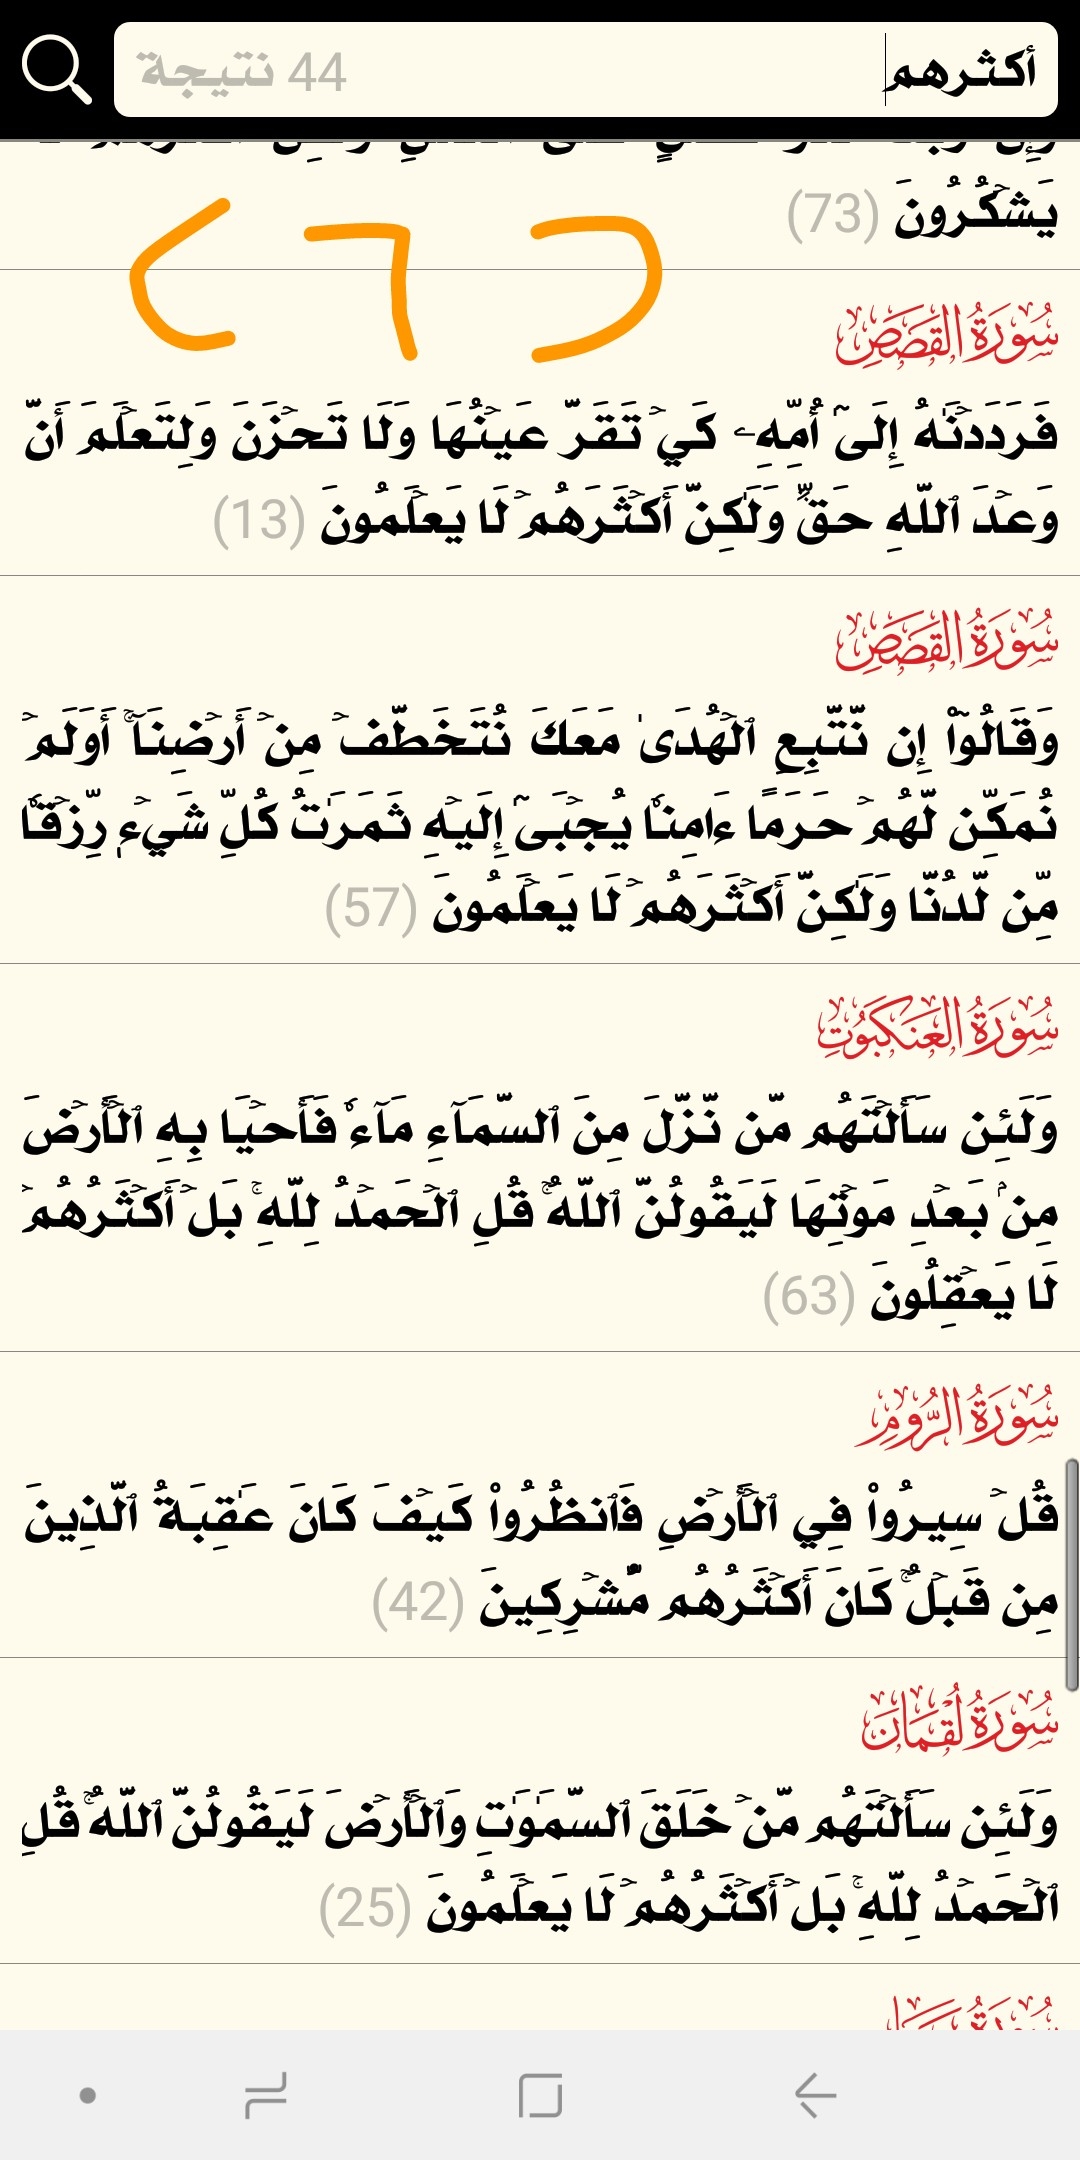 أكثرهم 44 نتيجة
يَشۡكُرُونَ (73)
(٦)
سُورَةُ القَصَصِ
فَرَدَدۡنَٰهُ إِلَىٰٓ أُمِّهِۦ كَيۡ تَقَرَّ عَيۡنُهَا وَلَا تَحۡزَنَ وَلِتَعۡلَمَ أَنَّ
وَعۡدَ ٱللَّهِ حَقّٞ وَلَٰكِنَّ أَكۡثَرَهُمۡ لَا يَعۡلَمُونَ (13)
سُورَةُ القَصَصِ
وَقَالُوٓاْ إِن نَّتَّبِعِ ٱلۡهُدَىٰ مَعَكَ نُتَخَطَّفۡ مِنۡ أَرۡضِنَآۚ أَوَلَمۡ
نُمَكِّن لَّهُمۡ حَرَمًا ءَامِنٗا يُجۡبَىٰٓ إِلَيۡهِ ثَمَرَٰتُ كُلِّ شَيۡءٖ رِّزۡقٗا
مِّن لَّدُنَّا وَلَٰكِنَّ أَكۡثَرَهُمۡ لَا يَعۡلَمُونَ (57)
سُورَةُ العَنكَبُوتِ
وَلَئِن سَأَلۡتَهُم مَّن نَّزَّلَ مِنَ ٱلسَّمَآءِ مَآءٗ فَأَحۡيَا بِهِ ٱلۡأَرۡضَ
مِنۢ بَعۡدِ مَوۡتِهَا لَيَقُولُنَّ ٱللَّهُۚ قُلِ ٱلۡحَمۡدُ لِلَّهِۚ بَلۡ أَكۡثَرُهُمۡ
لَا يَعۡقِلُونَ (63)
سُورَةُ الرُّومِ
قُلۡ سِيرُواْ فِي ٱلۡأَرۡضِ فَٱنظُرُواْ كَيۡفَ كَانَ عَٰقِبَةُ ٱلَّذِينَ
مِن قَبۡلُۚ كَانَ أَكۡثَرُهُم مُّشۡرِكِينَ (42)
سُورَةُ لُقۡمَانَ
وَلَئِن سَأَلۡتَهُم مَّنۡ خَلَقَ ٱلسَّمَٰوَٰتِ وَٱلۡأَرۡضَ لَيَقُولُنَّ ٱللَّهُۚ قُلِ
ٱلۡحَمۡدُ لِلَّهِۚ بَلۡ أَكۡثَرُهُمۡ لَا يَعۡلَمُونَ (25)